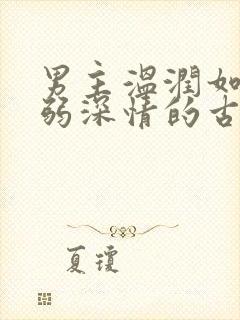 男主温润如
弱深情的古
夏琼